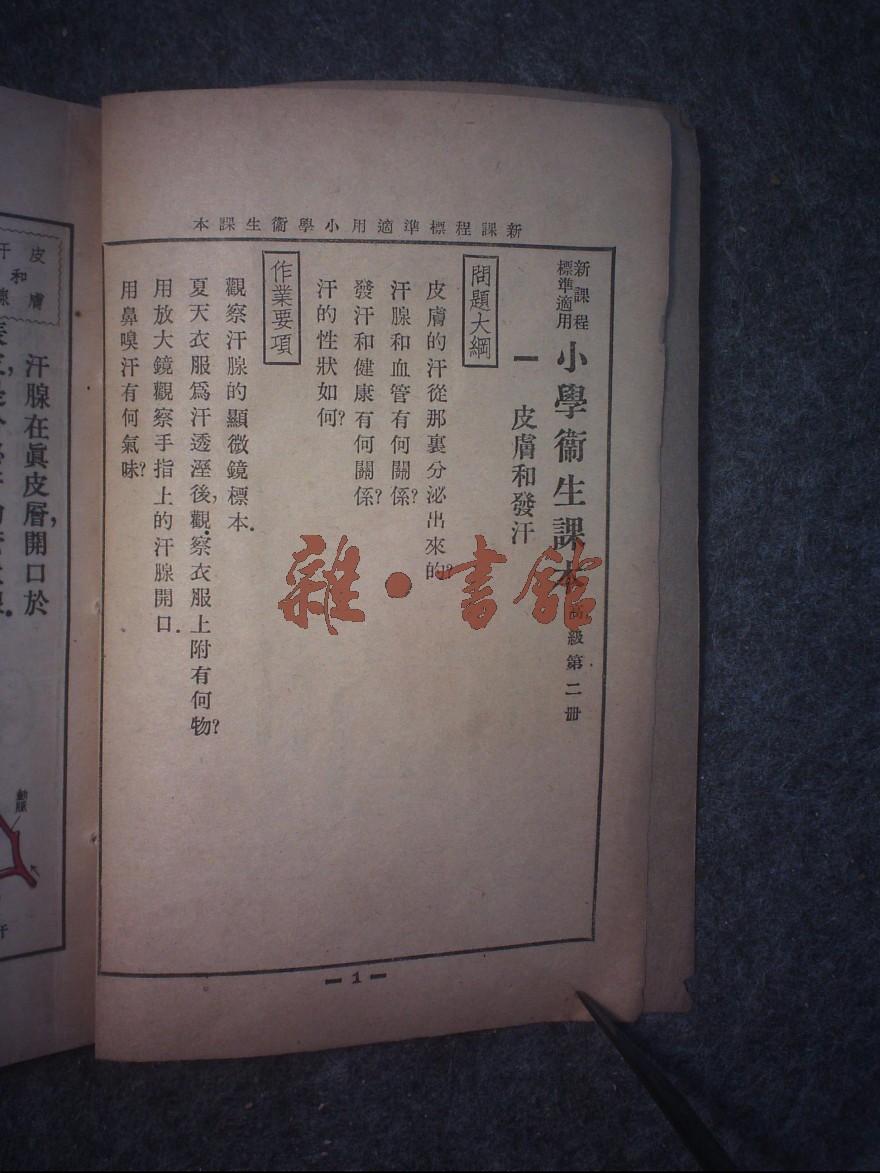 本課生衞學小用適準標程課新
新課程
標準適用
小學衞生課本
高級第二册
一 皮膚和發汗
問題大綱
皮膚的汗從那裏分泌出來的?
汗腺和血管有何關係?
發汗和健康有何關係?
汗的性狀如何?
作業要項
觀察汗腺的顯微鏡標本.
夏天衣服爲汗透溼後,觀察衣服上附有何物?
用放大鏡觀察手指上的汗腺開口.
用鼻嗅汗有何氣味?
1
雜·書館
皮膚
和
汗腺
汗腺在眞皮層,開口於
動脈